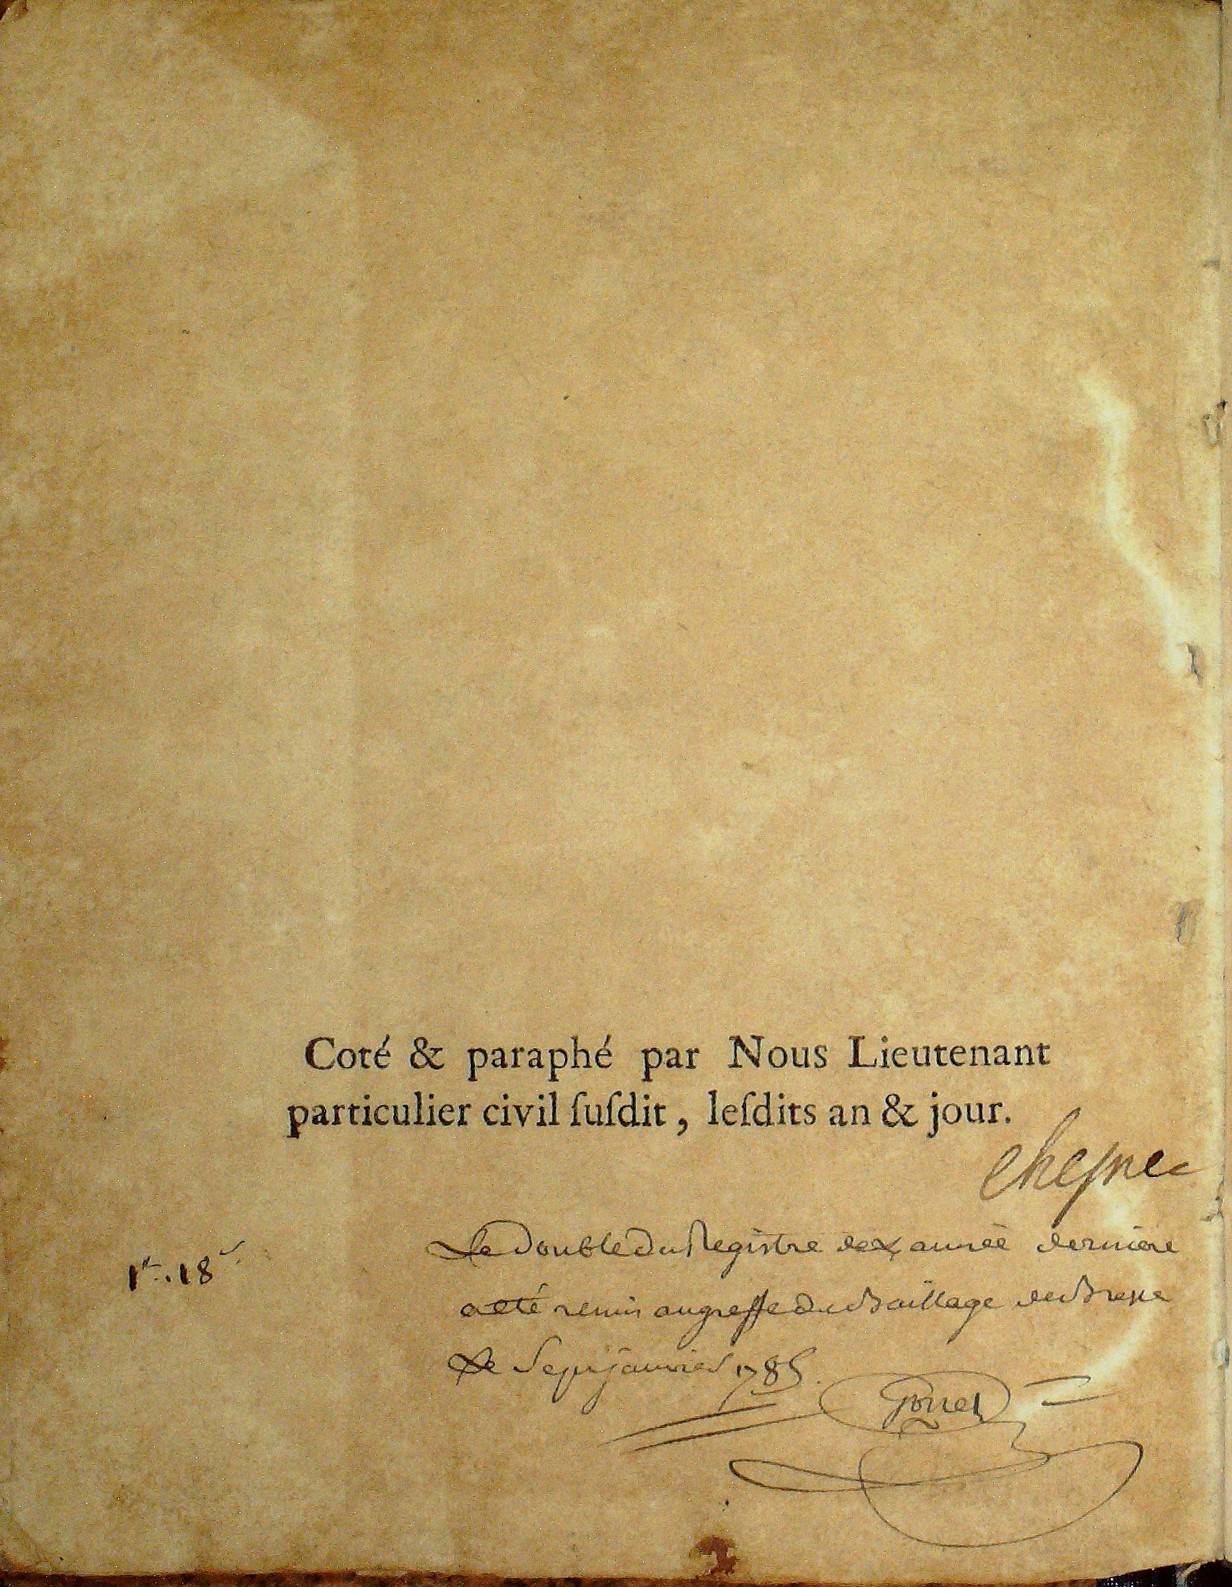 Coté & paraphé par Nous Lieutenant
particulier civil ſuſdit, leſdits an & jour.
Chesne
Le double du Registre de année derniere
a eté remis au greffe du Bailliage de Bresse
Le Sept janvier 1785.